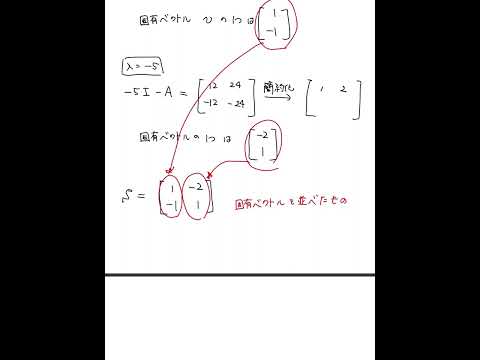 固有ベクトル v の1つは [1 -1]
λ = -5
-5I - A = [12 24 -12 -24] 簡約化 → [1 2]
固有ベクトルの1つは [-2 1]
S = [1 -2 -1 1]
固有ベクトルを並べたもの